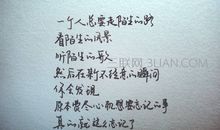 一个人总要走陌生的路
看陌生的风景
听陌生的歌
然后在某个不经意的瞬间
你会发现
原本费尽心机想要忘记的事
真的就这么忘记了
三联网 3LIAN.COM